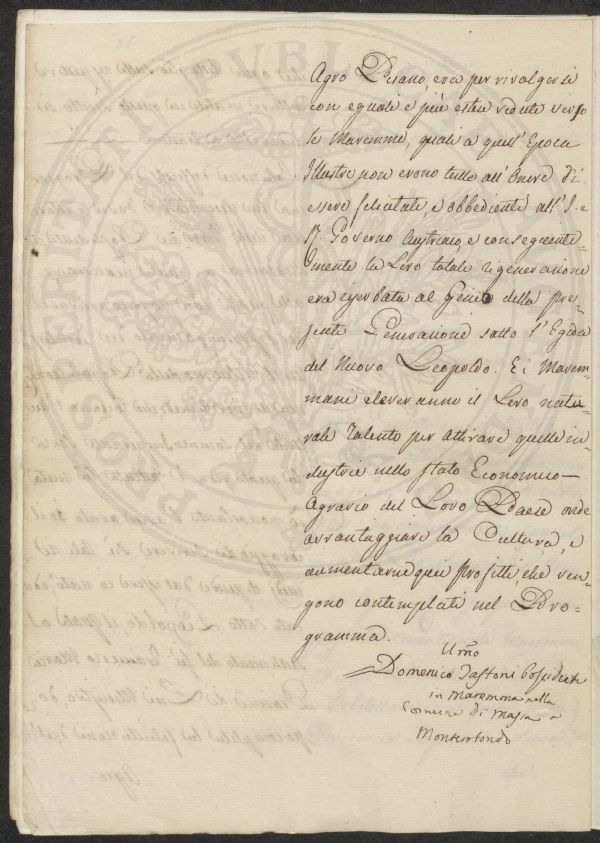 Agro Pisano, era per rivolgersi
con eguali e più estese vedute verso
le Maremme, quali a quell'Epoca
Illustre non erono tutte all'Onore di
essere felicitate, e obbedienti all'I. e
R. Governo Austriaco, e conseguente-
mente la Loro totale rigenerazione
era riserbata al Genio della pre-
sente Generazione sotto l'Egida
del Nuovo Leopoldo. E i Marem-
mani eleveranno il Loro natu-
rale Talento per attivare quelle in-
dustrie nello stato Economico-
Agrario del Loro Paese onde
avvantaggiare la Cultura, e
aumentarne quei profitti che ven-
gono contemplati nel Pro-
gramma.
Umo
Domenico Possidente
in Maremma nella
Comune di Massa a
Monterotondo
PVBLICAE PROSPERITATI